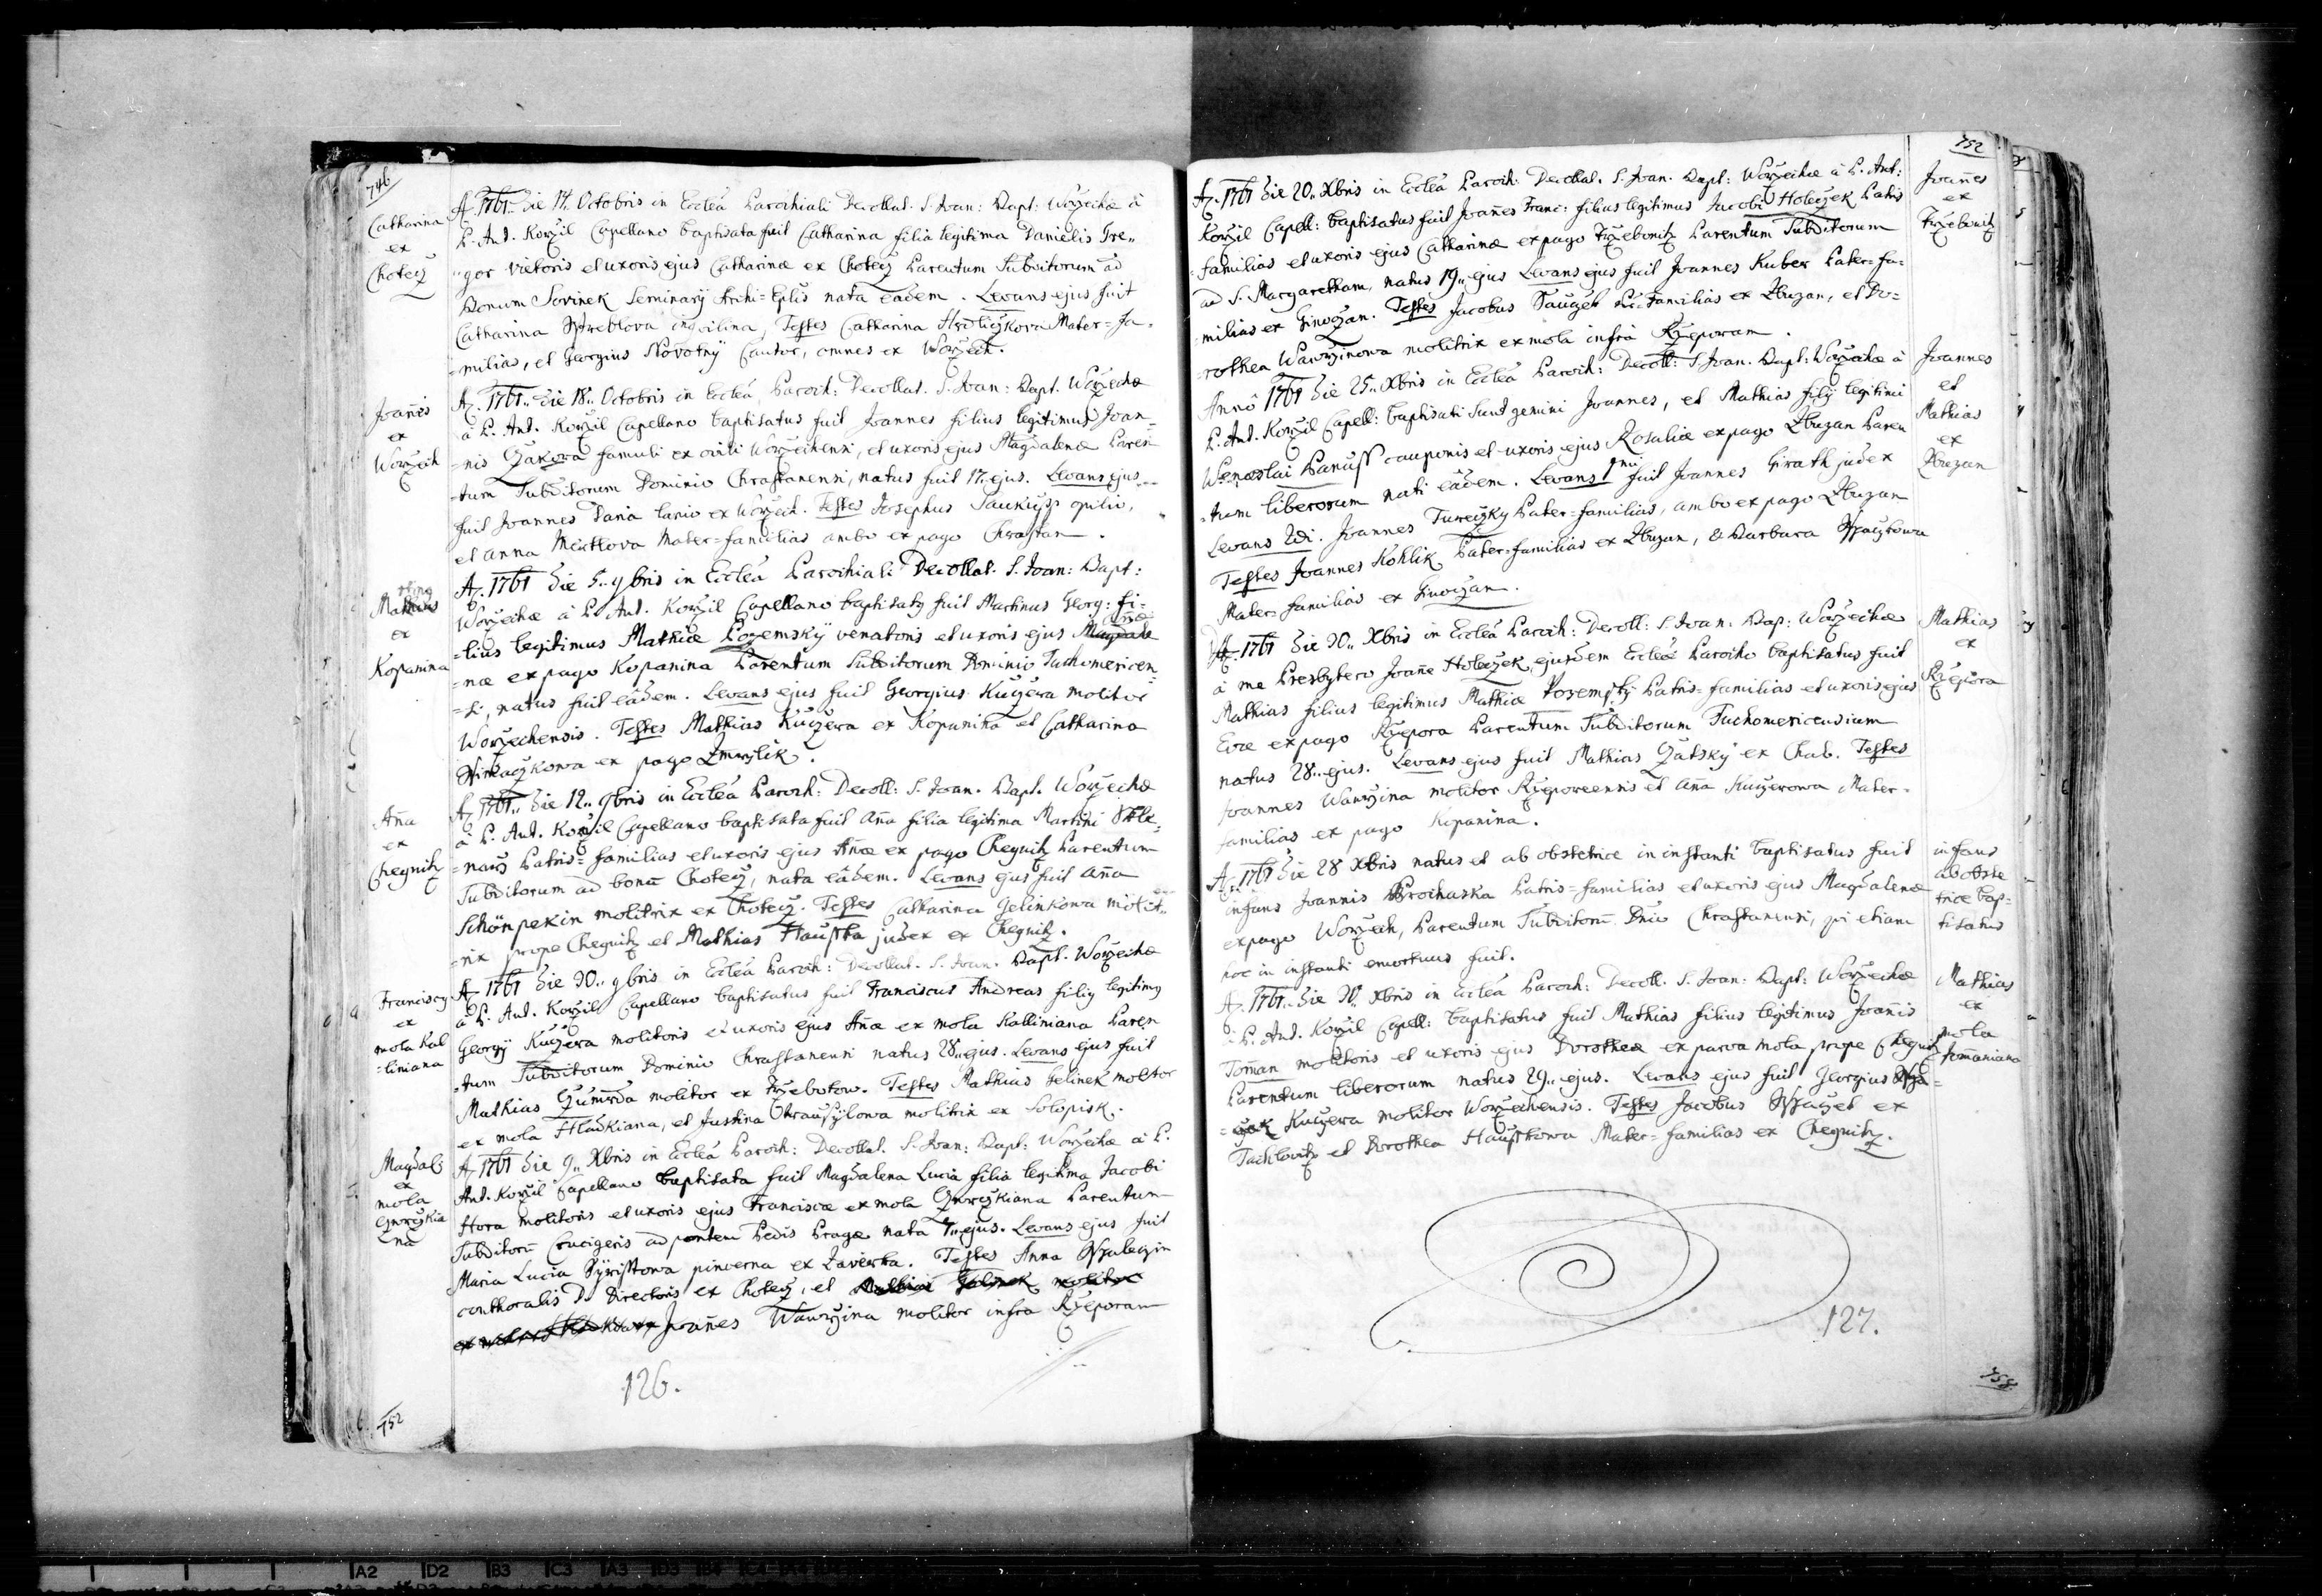 746
Catharina
ex
Choteč
A. 1761. Die 14. Octobris in Ecclea Parochiali Decollat. S. Joan: Bapt: Worzechæ à
P. Ant. Korzil Capellano baptisata fuit Catharina filia legitima Danielis Gre„
„gor vietoris et uxoris ejus Catharinæ ex Choteč Parentum Subditorum ad
Bonum Sovinek Seminarÿ Archi=Eplis nata eadem. Levans ejus fuit
Catharina inquilina, Testes Catharina Hrdliczkova Mater=Fa=
=milias, et Georgius Novotnÿ Cantor, omnes ex Worzech.
Joañes
ex
Worzech
A. 1761. Die 18. Octobris in Ecclea Paroch: Decollat. S. Joan: Bapt. Worzechæ
à P. Ant. Korzil Capellano baptisatus fuit Joannes filius legitimus Joan=
=nis famuli ex ovili Worzechensi, et uxoris ejus Magdalenæ Paren
=tum Subditorum Dominio Chrastanensi, natus fuit 17. ejus. Levans ejus
fuit Joannes lanio ex Worzech. Testes Josephus opilio,
et Anna Mater=familias ambo ex pago Chrastan.
Martinus
ex
Kopanina
A. 1761 Die 5. 9bris in Ecclea Parochiali Decollat. S. Joan: Bapt:
Worzechæ à P. Ant. Korzil Capellano baptisatus fuit Martinus Georg: fi=
=lius legitimus Mathiæ Pozemskÿ venatoris et uxoris ejus Añæ
ex pago Kopanina Parentum Subditorum Dominio Tuchomericen
=si, natus fuit eadem. Levans ejus fuit Georgius Kuczera molitor
Worzechensis. Testes Mathias Kuczera ex Kopanina et Catharina
ex pago Zmrzlik.
Aña
ex
Chegnitz
A. 1761. Die 12. 9bris in Ecclea Paroch: Decoll: S. Joan. Bapt. Worzechæ
à P. Ant. Korzil Capellano baptisata fuit Aña filia legitima Martini
Patris=familias et uxoris ejus Añæ ex pago Chegnitz Parentum
Subditorum ad bonū Choteč, nata eadem. Levans ejus fuit Aña
Schönpekin molitrix ex Choteč. Testes Catharina Gelinkowa molit„
=rix prope Chegnitz et Mathias Haustka judex ex Chegnitz.
Franciscus
ex
mola Kal
=liniana
A. 1761 Die 30. 9bris in Ecclea Paroch: Decollat. S. Joan. Bapt. Worzechæ
à P. Ant. Korzil Capellano baptisatus fuit Franciscus Andreas filius legitimus
Georgÿ Kuczera molitoris et uxoris ejus Añæ ex mola Kalliniana Paren
=tum Subditorum Dominio Chrastanensi natus 28. ejus. Levans ejus fuit
Mathias molitor ex Trzebotow. Testes Mathias Gelinek molitor
ex mola Hladkiana, et Justina molitrix ex Solopisk.
Magdal:
ex
mola
A. 1761 Die 9. Xbris in Ecclea Paroch: Decollat. S. Joan: Bapt: Worzechæ à P.
Ant. Korzil Capellano baptisata fuit Magdalena Lucia filia legitima Jacobi
Hora molitoris et uxoris ejus Franciscæ ex mola Parentum
Subditorū Crucigeris ad pontem Pedis Pragæ nata 7. ejus. Levans ejus fuit
Maria Lucia pincerna ex Zaverka. Testes Anna
conthoralis D. Directoris ex Choteč, et Mathias Gelinek molitor
Joañes Wawrzina molitor infra Rzeporam
126.
752
752
A. 1761 Die 20. Xbris in Ecclea Paroch: Decollat. S. Joan. Bapt: Worzechæ à P. Ant:
Korzil Capell: baptisatus fuit Joañes Franc: filius legitimus Jacobi Holeczek Patris
familias et uxoris ejus Catharinæ ex pago Trzebonitz Parentum Subditorum
ad S. Margaretham, natus 19. ejus Levans ejus fuit Joannes Kuber Pater=fa=
milias ex Ginoczan. Testes Jacobus Familias ex Zbuzan, et Do=
=rothea Wawrzinowa molitrix ex mola infra Rzeporam.
Joañes
ex
Trzebonitz
Annô 1761 Die 25. Xbris in Ecclea Paroch: Decoll: S. Joan. Bapt: Worzechæ à
P. Ant. Korzil Capell: baptisati sunt gemini Joannes, et Mathias filÿ legitimi
Wenceslai Hanuss cauponis et uxoris ejus Rosaliæ ex pago Zbuzan Paren
=tum liberorum nati eadem. Levans 1mi fuit Joannes Girath judex
Levans 2di. Joannes Tureczky Pater=familias, ambo ex pago Zbuzan
Testes Joannes Kohlik Pater=familias ex Zbuzan, & Barbara
Mater=familias ex Ginoczan.
Joannes
et
Mathias
ex
Zbuzan
A. 1761 Die 30. Xbris in Ecclea Paroch: Decoll: S. Joan: Bap: Worzechæ
à me Presbytero Joañe Holeczek, ejusdem Ecclæ Parocho baptisatus fuit
Mathias filius legitimus Mathiæ Pozempsky Patris=familias et uxoris ejus
Evæ ex pago Rzepora Parentum Subditorum Tuchomericensium
natus 28. ejus. Levans ejus fuit Mathias Zatsky ex Chab. Testes
Joannes Wawrzina molitor Rzeporeensis et Aña Kuczerowa Mater=
familias ex pago Kopanina.
Mathias
ex
Rzepora
A. 1761 Die 28 Xbris natus et ab obstetrice in instanti baptisatus fuit
infans Joannis Prochaska Patris=familias et uxoris ejus Magdalenæ
ex pago Worzech, Parentum Subditorū Dnio Chrastanensi, qui etiam
hoc in instanti emortuus fuit.
infans
ab obste
trice bap=
tisatus
A. 1761. Die 30. Xbris in Ecclea Paroch: Decoll. S. Joan: Bapt: Worzechæ
à P. Ant. Korzil Capell: baptisatus fuit Mathias filius legitimus Joañis
Toman molitoris et uxoris ejus Dorotheæ ex parva mola prope Chegnitz
Parentum liberorum natus 29. ejus. Levans ejus fuit Georgius
Kuczera molitor Worzechensis. Testes Jacobus ex
Tachlovitz et Dorothea Haustkowa Mater=familias ex Chegnitz.
Mathias
ex
mola
Tomaniana
127.
758